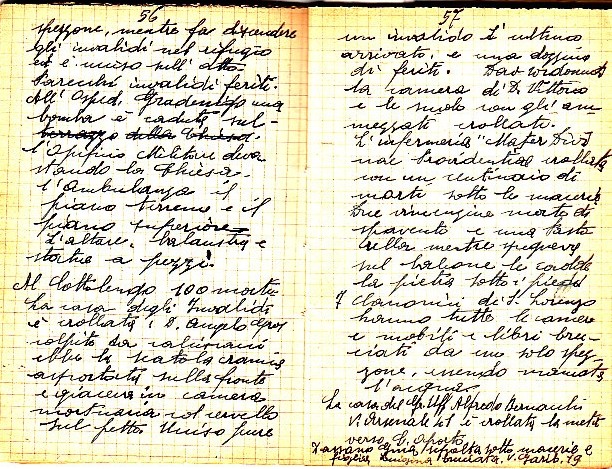 56
spezzone, mentre fa discendere
gli invalidi nel rifugio
ed è ucciso sull'atto
Parecchi invalidi feriti.
All'Osped. Gradenigo una
bomba è caduta sul-
terrazzo della Chiesa.
l'Ufficio Militare deva
stando la Chiesa.
l'ambulanza il
piano terreno e il
piano superiore
L'altare, balaustra e
statue a pezzi.
Al Cottolengo 100 morti
La casa degli Invalidi
è crollata: D. Angelo
colpito da calcinacci
ebbe la scatola cranica
asportata sulla fronte
e giaceva in camera
mortuaria col cervello
sul petto Ucciso pure
57
un invalido l'ultimo
arrivato, e una dozzina
di feriti.
la camera di D. Vittorio
e le suole con gli am-
mezzati crollati.
L'infermeria "Mater Divi
nae Providentiae crollata
con un centinaio di
morti sotto le macerie
Due vincenzine morte di
spavento e una
mentre spegneva
sul balcone le cadde
la pietra sotto i piedi
I Canonici di S. Lorenzo
hanno tutte le camere
e mobili e libri bru-
ciati da un solo spez-
zone, essendo mancata
l'acqua.
La casa del Gr. Uff. Alfredo Bernardi
V. Arsenale 41 è crollata la metà
verso C. Oporto.
Gina sepolta sotto macerie e
figlia Luigina bruciata. V. 19